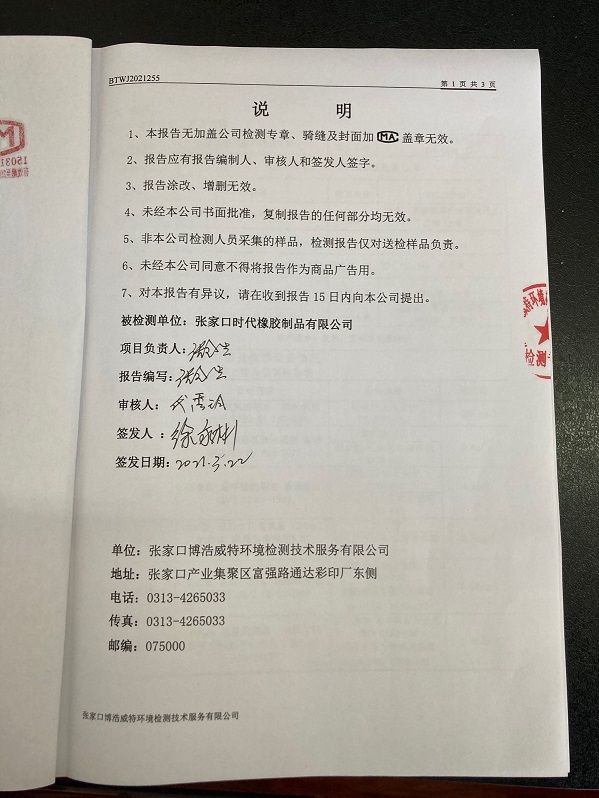 BTWJ2021255
第 1 页 共 3 页
说 明
1、本报告无加盖公司检测专章、骑缝及封面加 MA 盖章无效。
2、报告应有报告编制人、审核人和签发人签字。
3、报告涂改、增删无效。
4、未经本公司书面批准，复制报告的任何部分均无效。
5、非本公司检测人员采集的样品，检测报告仅对送检样品负责。
6、未经本公司同意不得将报告作为商品广告用。
7、对本报告有异议，请在收到报告 15 日内向本公司提出。
被检测单位：张家口时代橡胶制品有限公司
项目负责人：
报告编写：
审核人：
签发人 ：
签发日期：2021.3.22
单位：张家口博浩威特环境检测技术服务有限公司
地址：张家口产业集聚区富强路通达彩印厂东侧
电话：0313-4265033
传真：0313-4265033
邮编：075000
张家口博浩威特环境检测技术服务有限公司